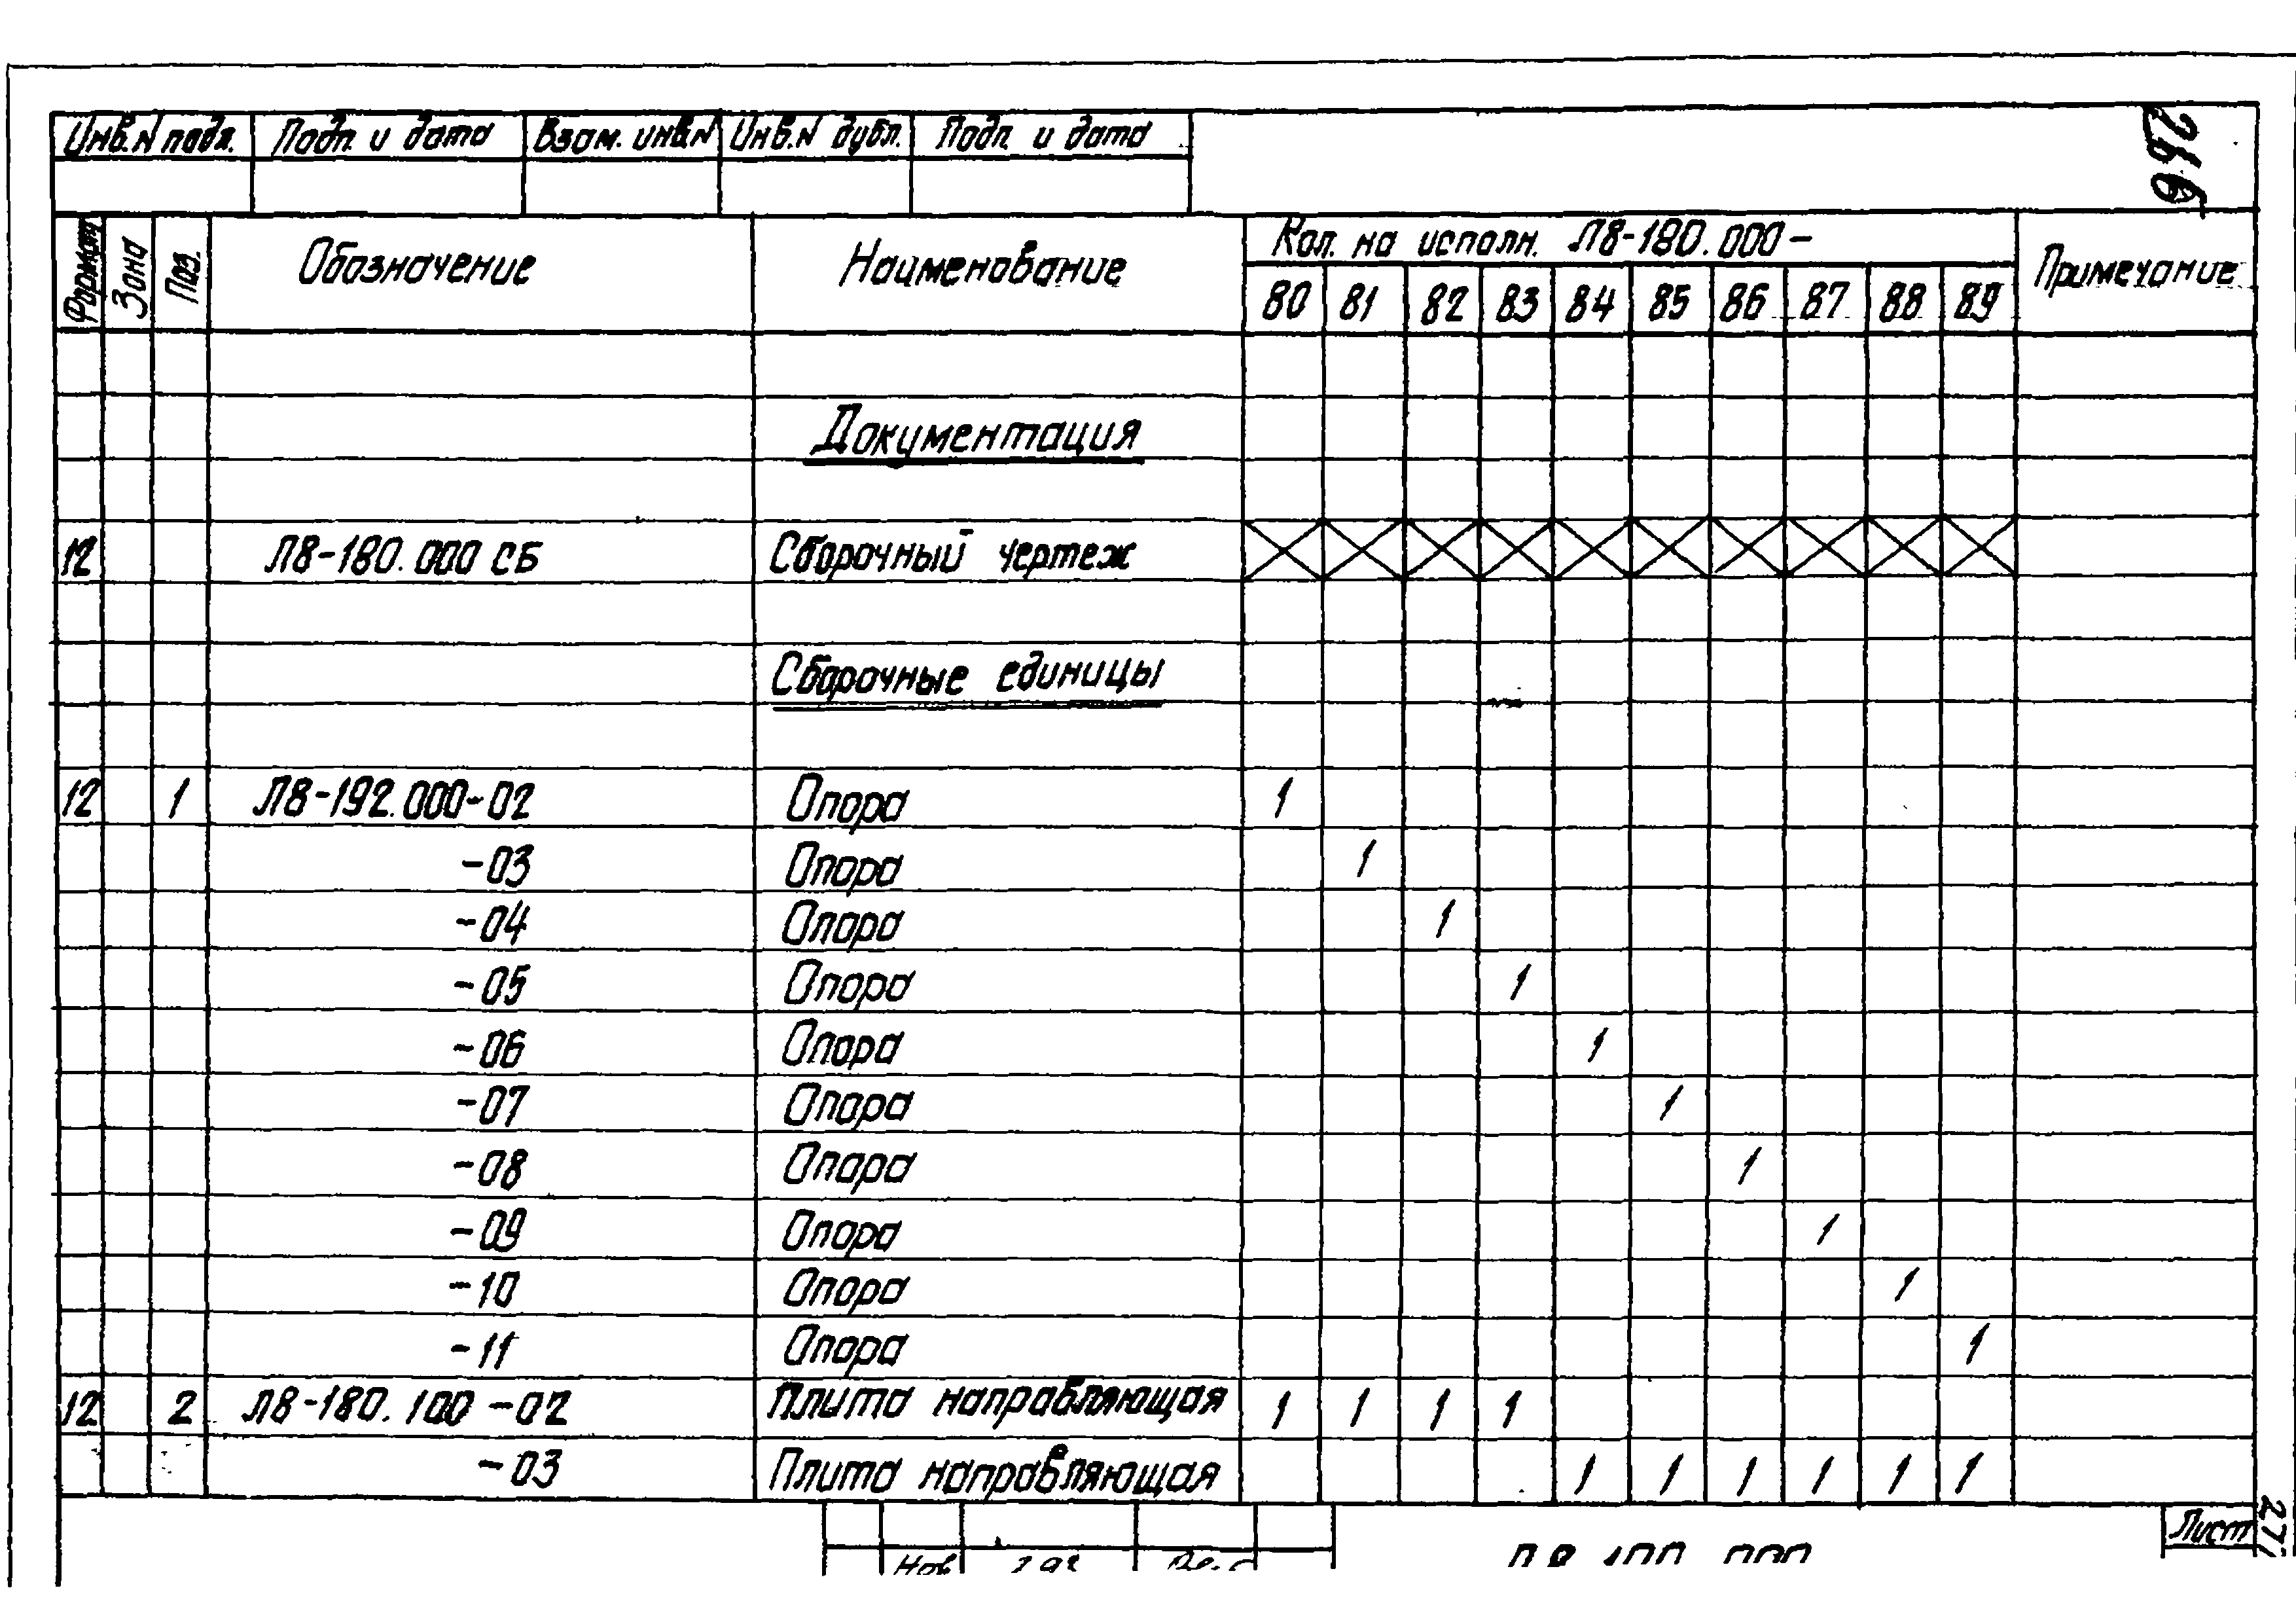 Инв.N подл. Подп. и дата Взам. инв.N Инв.N дубл. Подп. и дата
Формат Зона Поз. Обозначение Наименование Кол. на исполн. Л8-180.000- Примечание
80 81 82 83 84 85 86 87 88 89
Документация
12 Л8-180.000 СБ Сборочный чертеж
Сборочные единицы
12 1 Л8-192.000-02 Опора 1
-03 Опора 1
-04 Опора 1
-05 Опора 1
-06 Опора 1
-07 Опора 1
-08 Опора 1
-09 Опора 1
-10 Опора 1
-11 Опора 1
12 2 Л8-180.100-02 Плита направляющая 1 1 1 1
-03 Плита направляющая 1 1 1 1 1 1
Лист